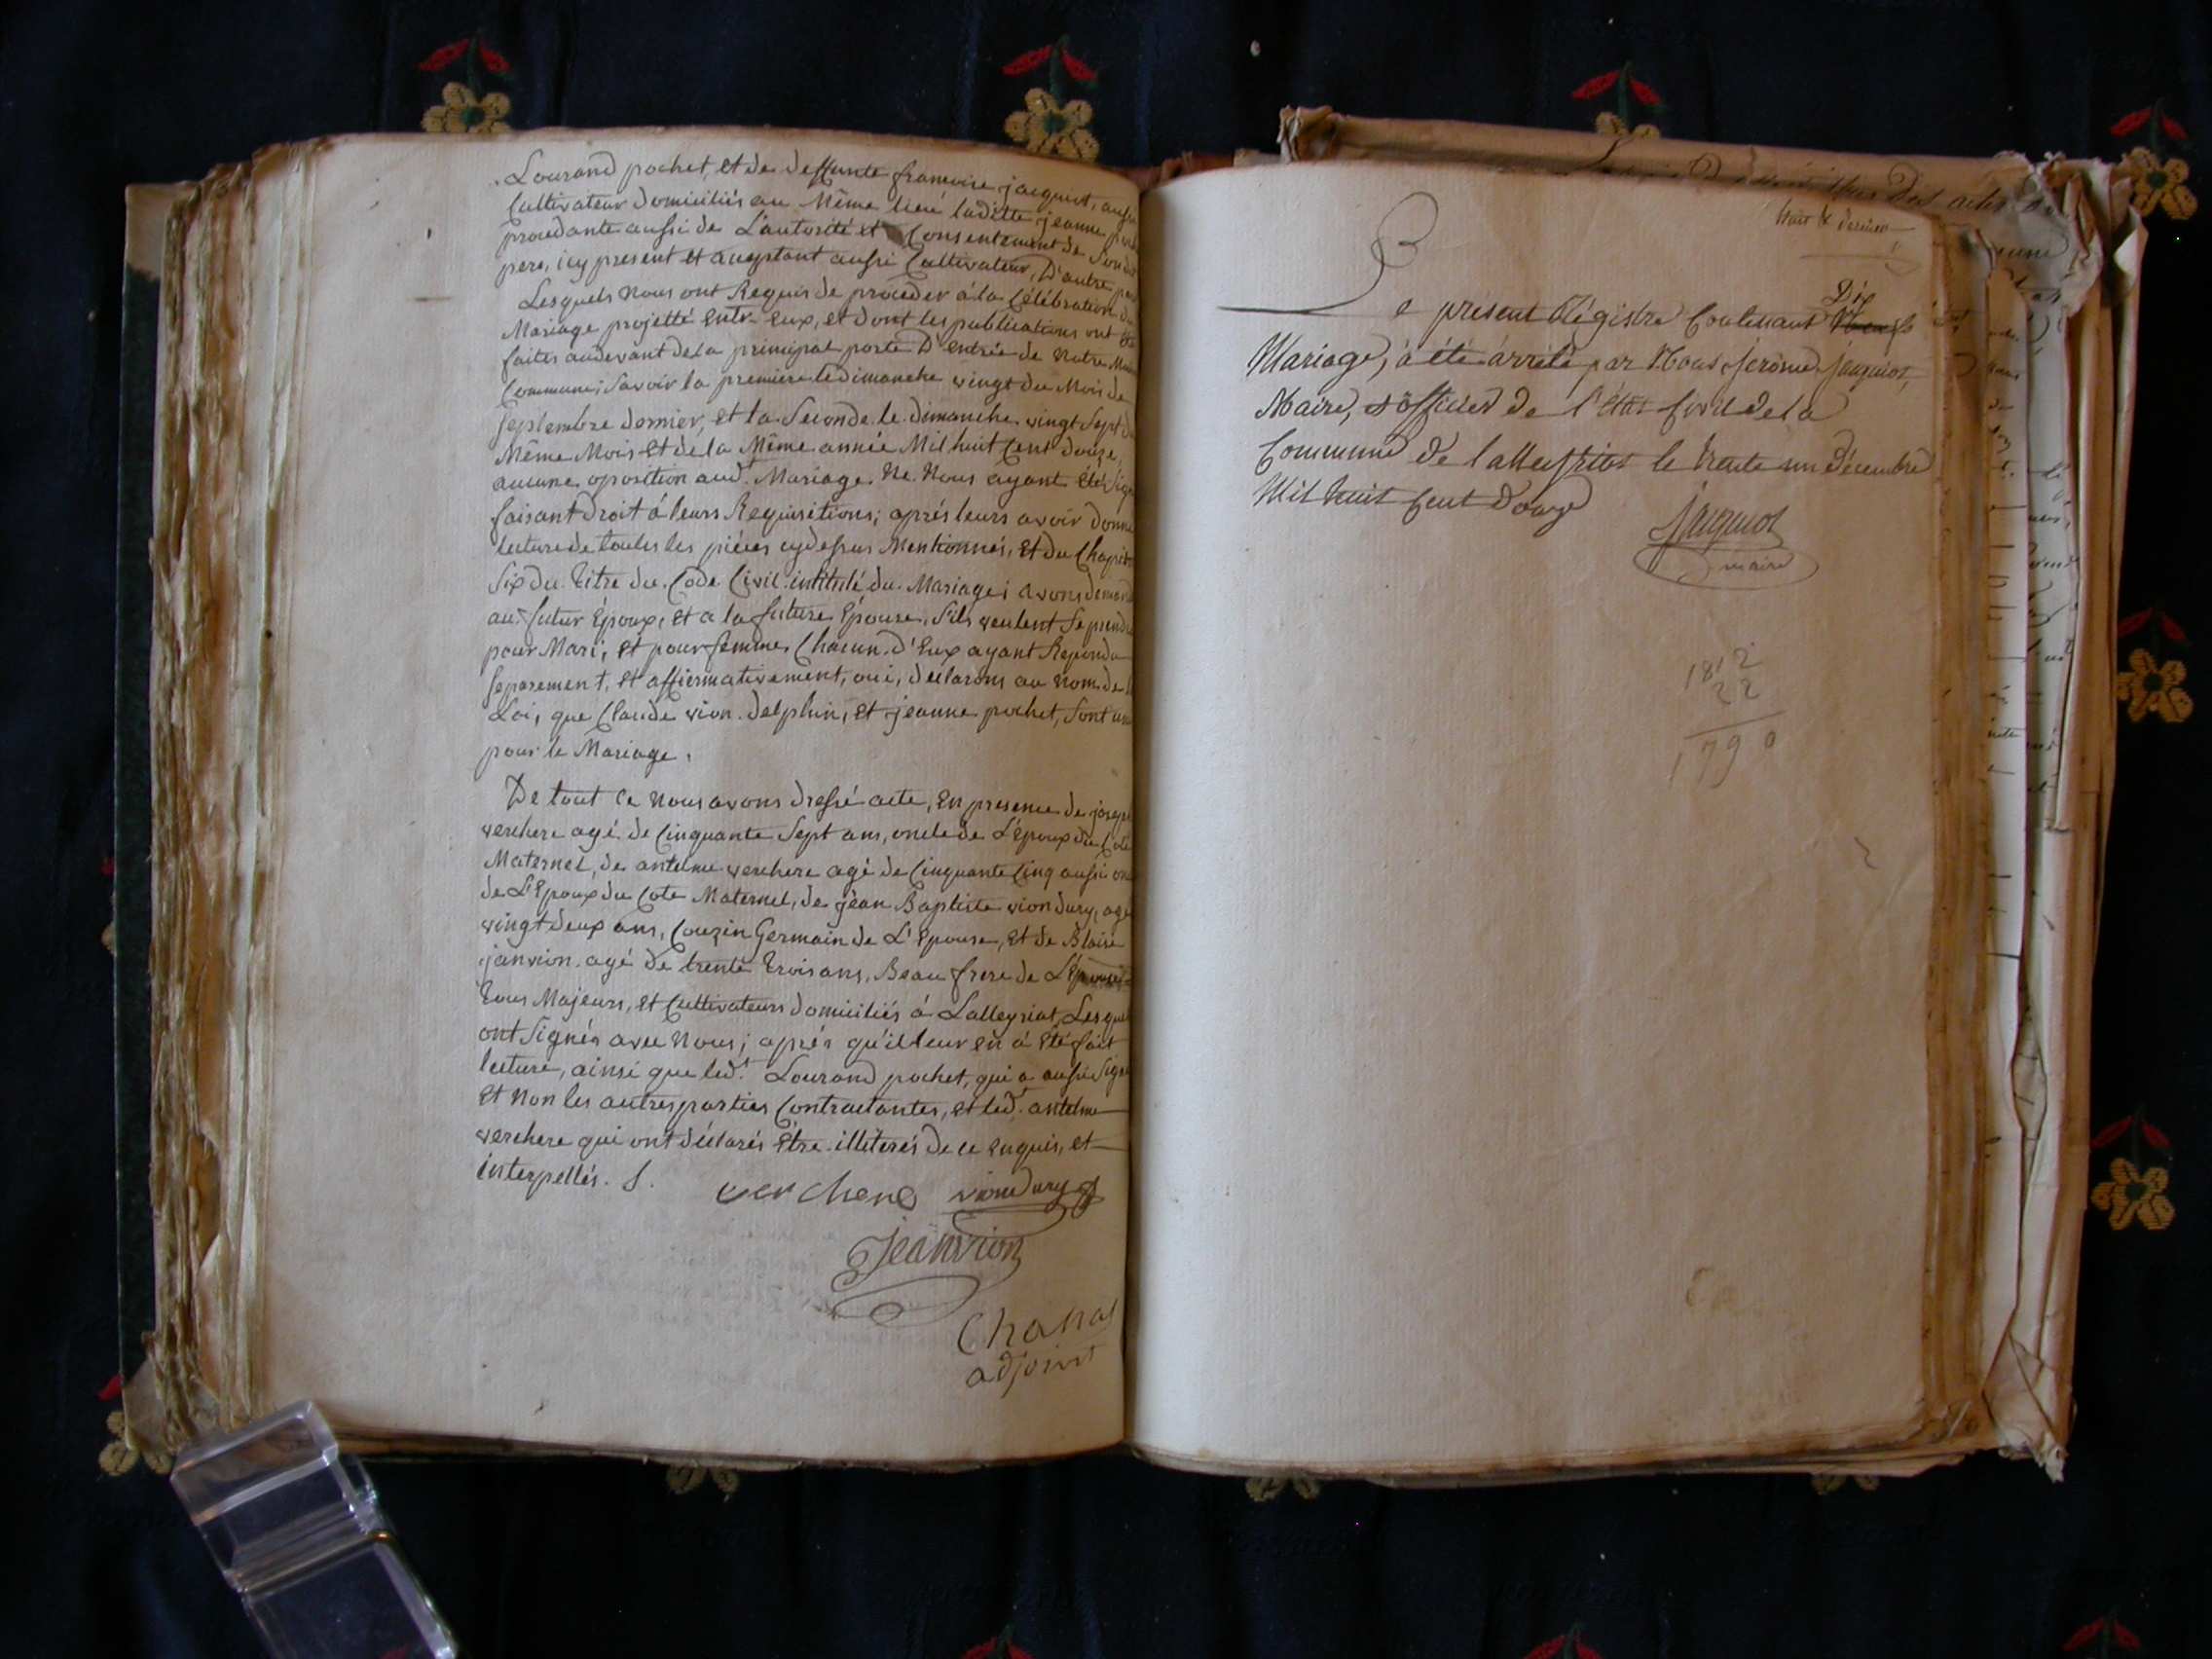 Lourand pochet, et de deffunte francoise jacquiot, aussi
Cultivateur domiciliés au Même lieu laditte jeanne
procedante aussi de L'autorité et Consentement de Son dit
pere, icy present et acceptant aussi Cultivateur, D'autre part
Lesquels Nous ont Requis de proceder à la Célébration du
Mariage projetté entr'eux, et dont les publications ont été
faites audevant de la principal porte D'entrée de Notre
Commune; Savoir la premiere le dimanche vingt du Mois de
Septembre dernier, et la Seconde le dimanche vingt Sept du
Même Mois et de la Même année Mil huit Cent douze,
aucune oposition aud.t Mariage Ne Nous ayant été
faisant droit á leurs Requisitions; aprés leurs avoir donné
lecture de toutes les piéces cydessus Mentionnés, et du Chapitre
Six du Titre du Code Civil intitulé du Mariage; avons demandé
au futur Epoux, et a la future Epouse, S'ils veulent Se prendre
pour Mari, et pour femme, Chacun d'Eux ayant Repondu
Separement, et affirmativement, oui, déclarons au nom de la
Loi, que Claude vion-delphin, et jeanne pochet, Sont unis
pour le Mariage.
De tout Ce Nous avons dressé acte, en presence de joseph
verchere agé de Cinquante Sept ans, oncle de L'époux du Coté
Maternel, de antelme verchere agé de Cinquante Cinq aussi oncle
de L'Epoux du Cote Maternel, de jéan Baptiste vion dury, agé
vingt deux ans, Couzin Germain de L'Epouse, et de Blaise
janvion agé de trente trois ans, Beau frere de L'Epouse
tous Majeurs, et Cultivateurs domiciliés á Lalleyriat, Lesquels
ont Signés avec Nous; aprés qu'il leur en á été fait
lecture, ainsi que led.t Lourand pochet, qui a aussi Signé
et Non les autres parties Contractantes, et led.t antelme
verchere qui ont déclarés Etre illiterés de ce enquis, et
interpellés. S.
verchere vionDury
Jeanvion
Chanal
adjoint
huit & dernier
Dix
Le présent Régistre Contenant
Mariage, à été arrêté par Nous, Jerôme Jaquiot,
Maire, & officier de l'état Civil de la
Commune de lalleyriat le trente un décembre
Mil huit Cent douze
Jaquiot
maire
1812
22
1790